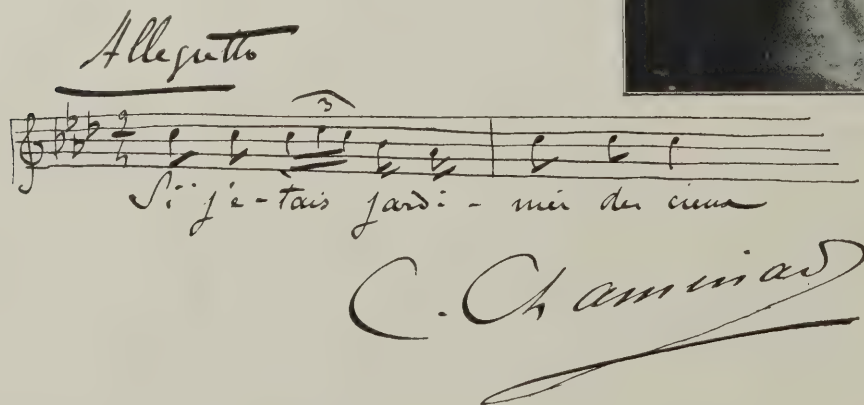 Allegretto
3
2
4
Si j'é-tais jardi-nier des cieux
C. Chaminade